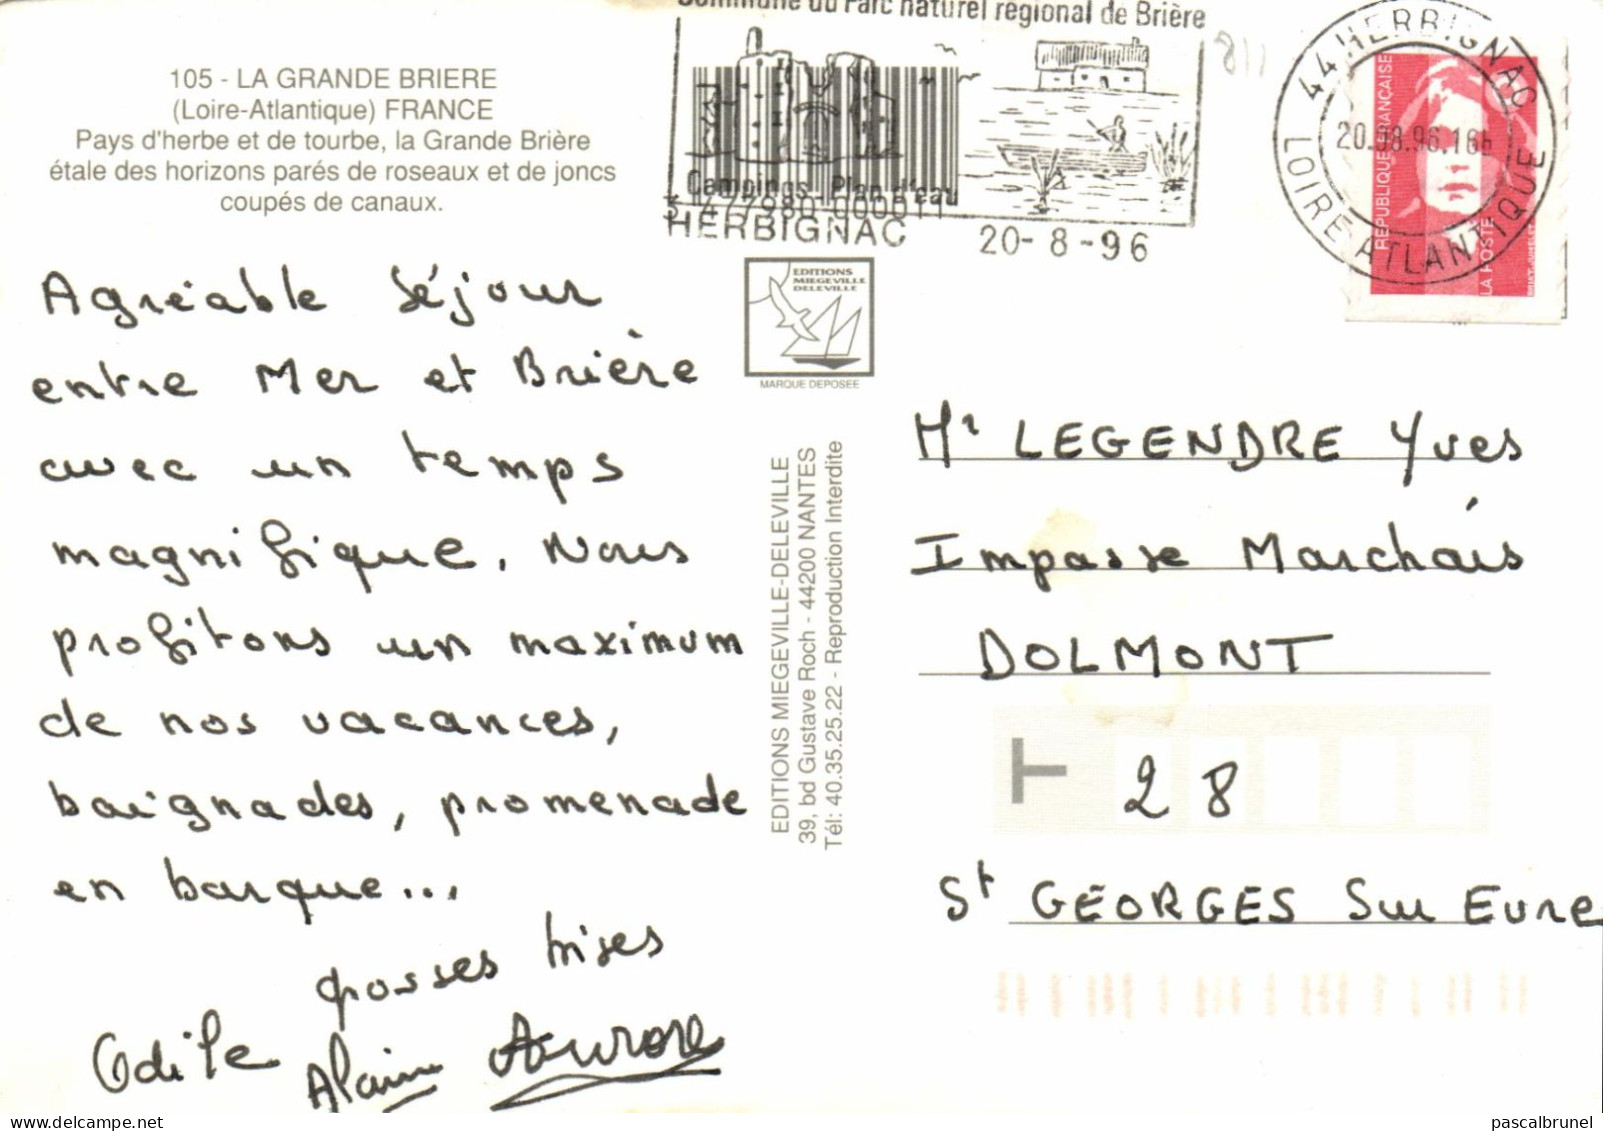 Commune du Parc naturel régional de Brière
Campings Plan d'eau
3 477980 000011
HERBIGNAC 20-8-96
811
44 HERBIGNAC
20.08.96.16h
LOIRE ATLANTIQUE
REPUBLIQUE FRANÇAISE
LA POSTE
105 - LA GRANDE BRIERE
(Loire-Atlantique) FRANCE
Pays d'herbe et de tourbe, la Grande Brière
étale des horizons parés de roseaux et de joncs
coupés de canaux.
EDITIONS
MIEGEVILLE
DELEVILLE
MARQUE DEPOSEE
Agréable séjour
entre Mer et Brière
avec un temps
magnifique. Nous
profitons un maximum
de nos vacances,
baignades, promenade
en barque...
grosses bises
Odile Alain Aurore
EDITIONS MIEGEVILLE-DELEVILLE
39, bd Gustave Roch - 44200 NANTES
Tél: 40.35.25.22 - Reproduction Interdite
Mr LEGENDRE Yves
Impasse Marchais
DOLMONT
28
St GEORGES Sur Eure
pascalbrunel